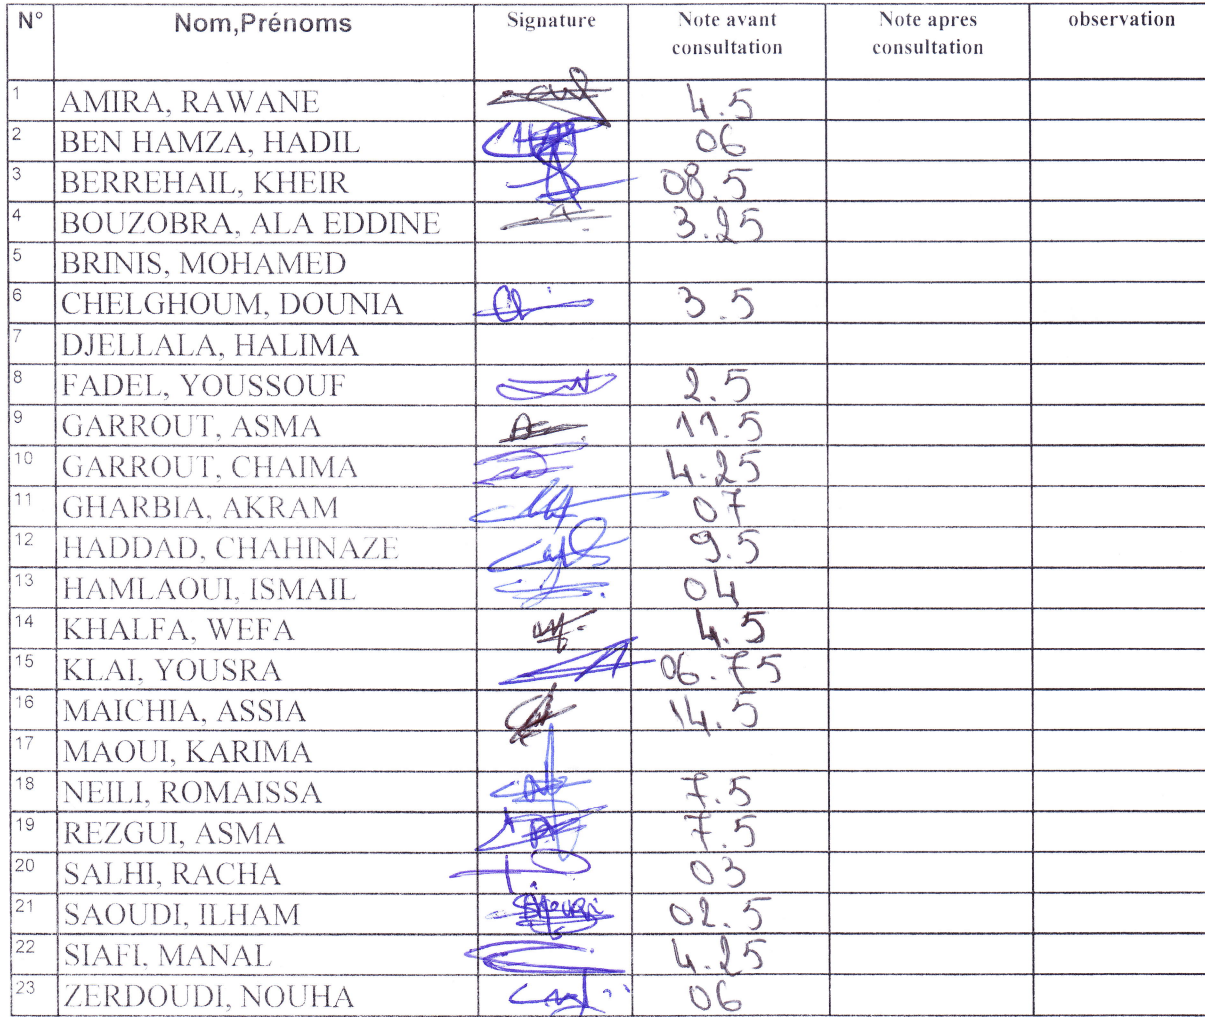 N° Nom,Prénoms Signature Note avant consultation Note apres consultation observation
1 AMIRA, RAWANE 4.5
2 BEN HAMZA, HADIL 06
3 BERREHAIL, KHEIR 08.5
4 BOUZOBRA, ALA EDDINE 3.25
5 BRINIS, MOHAMED
6 CHELGHOUM, DOUNIA 3.5
7 DJELLALA, HALIMA
8 FADEL, YOUSSOUF 2.5
9 GARROUT, ASMA 11.5
10 GARROUT, CHAIMA 4.25
11 GHARBIA, AKRAM 07
12 HADDAD, CHAHINAZE 9.5
13 HAMLAOUI, ISMAIL 04
14 KHALFA, WEFA 4.5
15 KLAI, YOUSRA 06.75
16 MAICHIA, ASSIA 14.5
17 MAOUI, KARIMA
18 NEILI, ROMAISSA 7.5
19 REZGUI, ASMA 7.5
20 SALHI, RACHA 03
21 SAOUDI, ILHAM 02.5
22 SIAFI, MANAL 4.25
23 ZERDOUDI, NOUHA 06